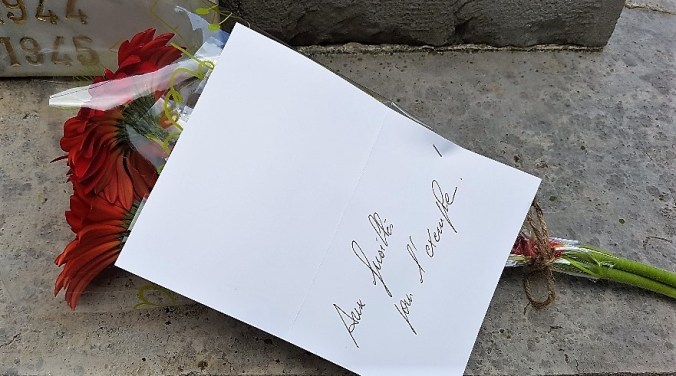 1944
1945
Aux fusillés
pour l'exemple.